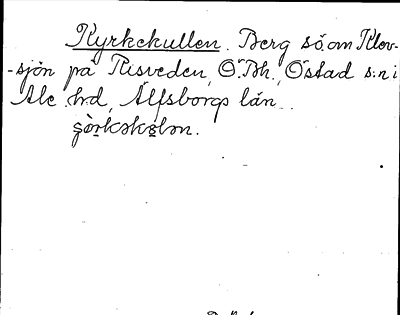 Kyrkekullen. Berg s.ö. om Klev-
-sjön på Risveden, Ö. Bh., Östad s:n i
Ale hd, Älfsborgs län.